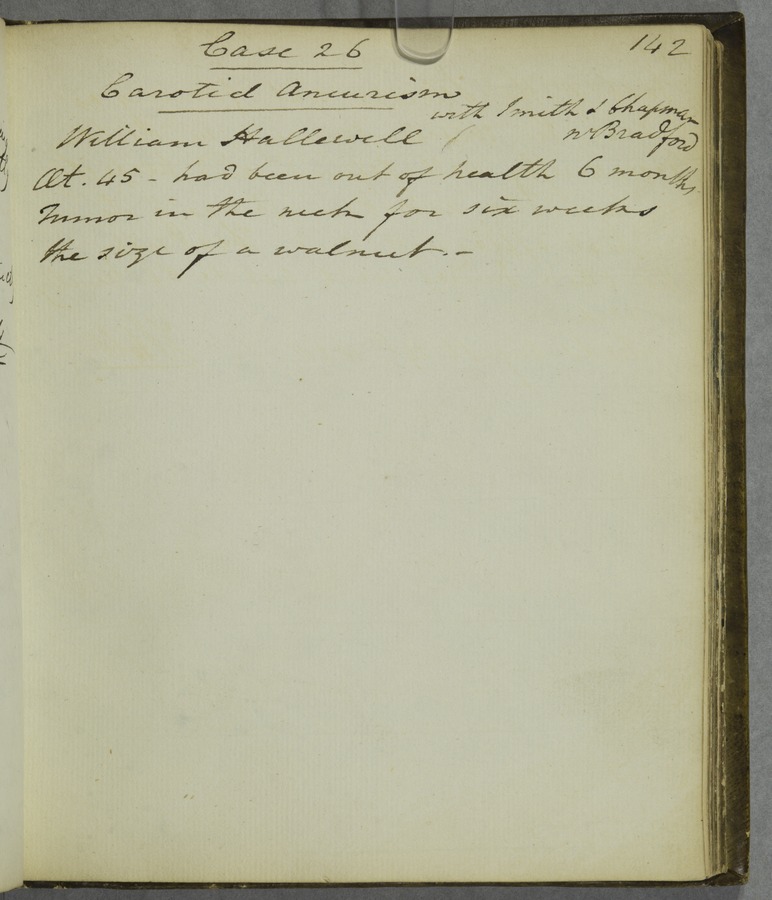 142
Case 26
Carotid Aneurism
with Smith & Chapman
nr Bradford
William Hallewell
Æt. 45 - had been out of health 6 months.
Tumor in the neck for six weeks
the size of a walnut. -